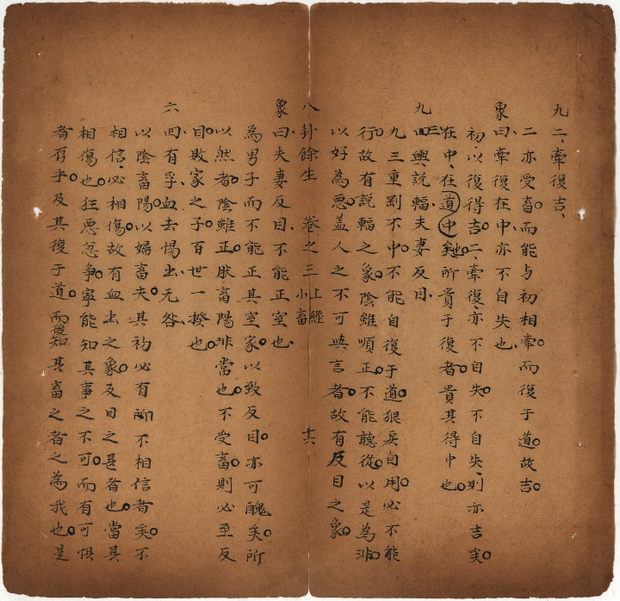 九二、牽復吉、
二亦受畜而能与初相牽而復于道故吉
象曰、牽復在中、亦不自失也、
初以復得吉二牽復亦不自失不自失、則亦吉矣
在中、在道中矣所貴于復者貴其得中也
九三、輿説輻、夫妻反目、
九三重剛不中不能自復于道狠戾自用必不能
行故有説輻之象陰雖順正不能聽從以是為非
以好為惡盖人之不可與言者故有反目之象
八卦餘生 卷之三 上經 小畜 十六
象曰、夫妻反目、不能正室也、
為男子而不能正其室家以致反目亦可醜矣所
以然者陰雖正欤畜陽非當也不受畜則必至反
目敗家之子百世一揆也
六四、有孚、血去惕出、无咎、
以陰畜陽以婦畜夫其初必有不相信者矣不
相信、必相傷故有血出之象反目之甚者也當其
相傷也狂悪忿争寧能知其事之不可而有可惧
者存乎及其復于道而知其畜之者之為我也是